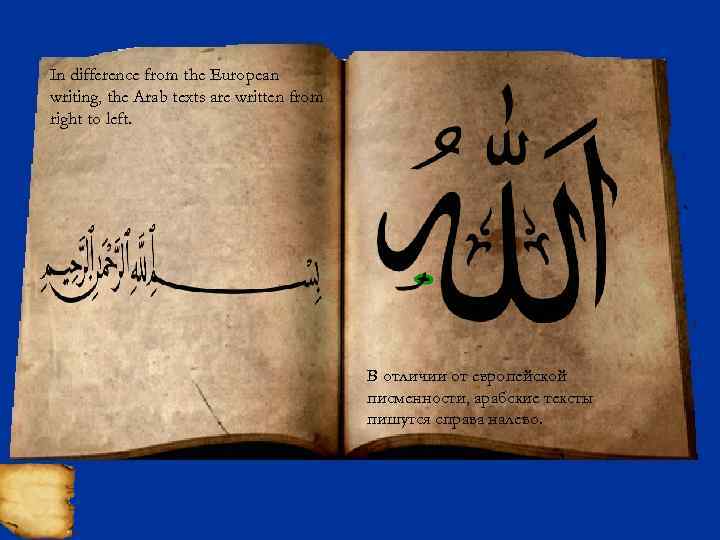 In difference from the European
writing, the Arab texts are written from
right to left.
بِسْمِ ٱللَّهِ ٱلرَّحْمَٰنِ ٱلرَّحِيمِ
اللّٰهُ
В отличии от европейской
писменности, арабские тексты
пишутся справа налево.